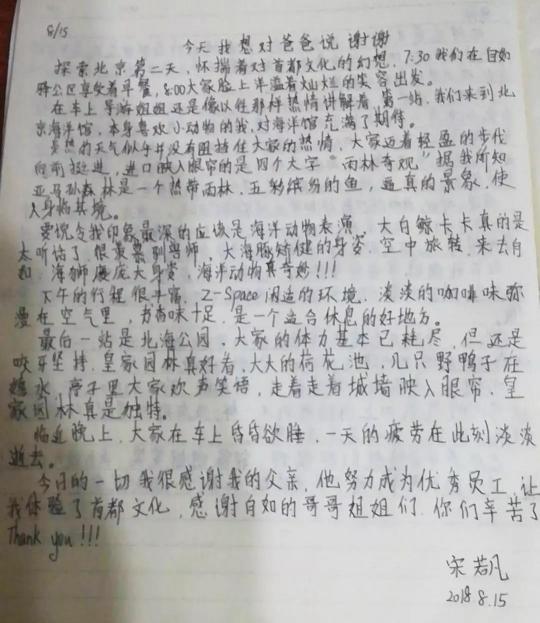 8/15
今天我想对爸爸说谢谢
探索北京第二天,怀揣着对首都文化的幻想,7:30我们在自如
公区享受着早餐,8:00大家脸上洋溢着灿烂的笑容出发。
在车上导游姐姐还是像以往那样热情讲解着,第一站,我们来到北
京海洋馆,本身喜欢小动物的我,对海洋馆充满了期待。
炎热的天气似乎并没有阻挡住大家的热情,大家迈着轻盈的步伐
向前挺进,进口映入眼帘的是四个大字“雨林奇观”据我所知
亚马孙森林是一个热带雨林,五彩缤纷的鱼,逼真的景象,使
人身临其境。
要说令我印象最深的应该是海洋动物表演,大白鲸卡卡真的是
太听话了,很亲密训导师,大海豚矫健的身姿,空中旋转,来去自
如,海狮庞大身姿,海洋动物真奇妙!!!
下午的行程很丰富,Z-Space闲适的环境,淡淡的咖啡味弥
漫在空气里,书香味十足,是一个适合休息的好地方。
最后一站是北海公园,大家的体力基本已耗尽,但还是
咬牙坚持,皇家园林真好看,大大的荷花池,几只野鸭子在
水,亭子里大家欢声笑语,走着走着城墙映入眼帘,皇
家园林真是独特。
临近晚上,大家在车上昏昏欲睡,一天的疲劳在此刻淡淡
逝去。
今日的一切我很感谢我的父亲,他努力成为优秀员工,让
我体验了首都文化,感谢自如的哥哥姐姐们,你们辛苦了
Thank you!!!
宋若凡
2018.8.15